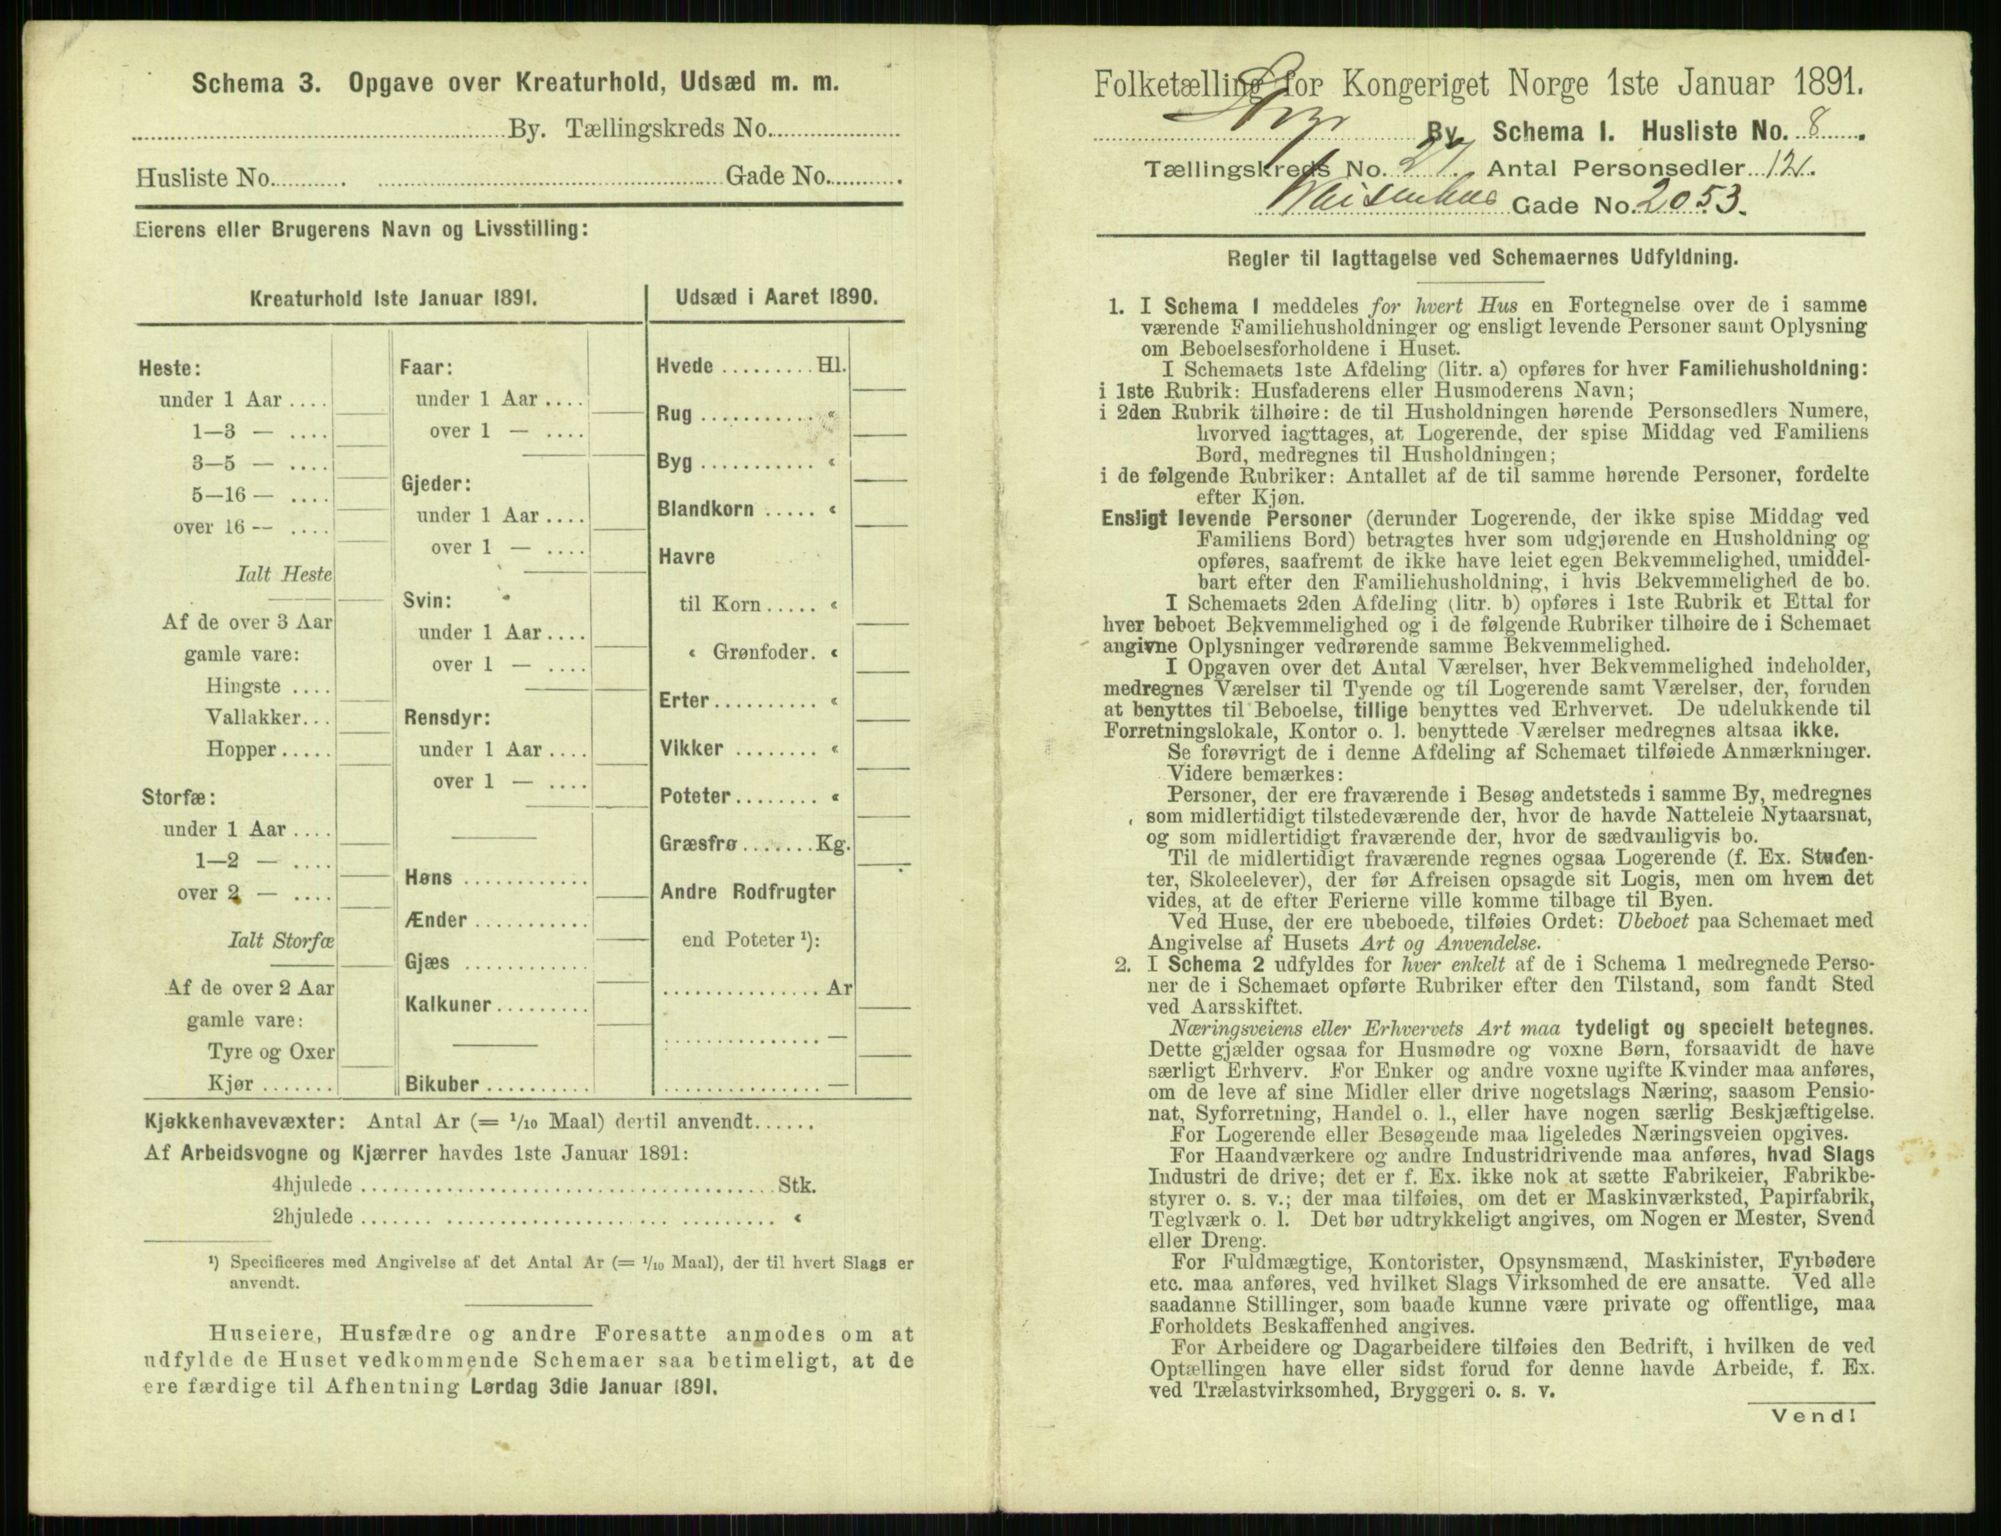 Schema 3. Opgave over Kreaturhold, Udsæd m. m.
By. Tællingskreds No.
Husliste No. Gade No.
Eierens eller Brugerens Navn og Livsstilling:
Kreaturhold 1ste Januar 1891.
Heste:
under 1 Aar ....
1—3 — ....
3—5 — ....
5—16 — ....
over 16 — ....
Ialt Heste
Af de over 3 Aar
gamle vare:
Hingste ....
Vallakker...
Hopper.....
Storfæ:
under 1 Aar ....
1—2 — ....
over 2 — ....
Ialt Storfæ
Af de over 2 Aar
gamle vare:
Tyre og Oxer
Kjør .......
Faar:
under 1 Aar ....
over 1 — ....
Gjeder:
under 1 Aar ....
over 1 — ....
Svin:
under 1 Aar ....
over 1 — ....
Rensdyr:
under 1 Aar ....
over 1 — ....
Høns ............
Ænder ...........
Gjæs ............
Kalkuner..........
Bikuber ..........
Udsæd i Aaret 1890.
Hvede ......... Hl.
Rug ........... «
Byg ........... «
Blandkorn ..... «
Havre
til Korn ..... «
« Grønfoder. «
Erter .......... «
Vikker ........ «
Poteter ........ «
Græsfrø ....... Kg.
Andre Rodfrugter
end Poteter ¹):
............... Ar
............... —
............... —
Kjøkkenhavevæxter: Antal Ar (= 1/10 Maal) dertil anvendt......
Af Arbeidsvogne og Kjærrer havdes 1ste Januar 1891:
4hjulede ....................................... Stk.
2hjulede ....... ..................... ......... «
¹) Specificeres med Angivelse af det Antal Ar (= 1/10 Maal), der til hvert Slags er
anvendt.
Huseiere, Husfædre og andre Foresatte anmodes om at
udfylde de Huset vedkommende Schemaer saa betimeligt, at de
ere færdige til Afhentning Lørdag 3die Januar 1891.
Folketælling for Kongeriget Norge 1ste Januar 1891.
By Schema I. Husliste No. 8.
Tællingskreds No. 27. Antal Personsedler 12.
Waisenhus Gade No. 2053.
Regler til Iagttagelse ved Schemaernes Udfyldning.
1. I Schema I meddeles for hvert Hus en Fortegnelse over de i samme
værende Familiehusholdninger og ensligt levende Personer samt Oplysning
om Beboelsesforholdene i Huset.
I Schemaets 1ste Afdeling (litr. a) opføres for hver Familiehusholdning:
i 1ste Rubrik: Husfaderens eller Husmoderens Navn;
i 2den Rubrik tilhøire: de til Husholdningen hørende Personsedlers Numere,
hvorved iagttages, at Logerende, der spise Middag ved Familiens
Bord, medregnes til Husholdningen;
i de følgende Rubriker: Antallet af de til samme hørende Personer, fordelte
efter Kjøn.
Ensligt levende Personer (derunder Logerende, der ikke spise Middag ved
Familiens Bord) betragtes hver som udgjørende en Husholdning og
opføres, saafremt de ikke have leiet egen Bekvemmelighed, umiddel-
bart efter den Familiehusholdning, i hvis Bekvemmelighed de bo.
I Schemaets 2den Afdeling (litr. b) opføres i 1ste Rubrik et Ettal for
hver beboet Bekvemmelighed og i de følgende Rubriker tilhøire de i Schemaet
angivne Oplysninger vedrørende samme Bekvemmelighed.
I Opgaven over det Antal Værelser, hver Bekvemmelighed indeholder,
medregnes Værelser til Tyende og til Logerende samt Værelser, der, foruden
at benyttes til Beboelse, tillige benyttes ved Erhvervet. De udelukkende til
Forretningslokale, Kontor o. l. benyttede Værelser medregnes altsaa ikke.
Se forøvrigt de i denne Afdeling af Schemaet tilføiede Anmærkninger.
Videre bemærkes:
Personer, der ere fraværende i Besøg andetsteds i samme By, medregnes
som midlertidigt tilstedeværende der, hvor de havde Natteleie Nytaarsnat,
og som midlertidigt fraværende der, hvor de sædvanligvis bo.
Til de midlertidigt fraværende regnes ogsaa Logerende (f. Ex. Studen-
ter, Skoleelever), der før Afreisen opsagde sit Logis, men om hvem det
vides, at de efter Ferierne ville komme tilbage til Byen.
Ved Huse, der ere ubeboede, tilføies Ordet: Ubeboet paa Schemaet med
Angivelse af Husets Art og Anvendelse.
2. I Schema 2 udfyldes for hver enkelt af de i Schema 1 medregnede Perso-
ner de i Schemaet opførte Rubriker efter den Tilstand, som fandt Sted
ved Aarsskiftet.
Næringsveiens eller Erhvervets Art maa tydeligt og specielt betegnes.
Dette gjælder ogsaa for Husmødre og voxne Børn, forsaavidt de have
særligt Erhverv. For Enker og andre voxne ugifte Kvinder maa anføres,
om de leve af sine Midler eller drive nogetslags Næring, saasom Pensio-
nat, Syforretning, Handel o. l., eller have nogen særlig Beskjæftigelse.
For Logerende eller Besøgende maa ligeledes Næringsveien opgives.
For Haandværkere og andre Industridrivende maa anføres, hvad Slags
Industri de drive; det er f. Ex. ikke nok at sætte Fabrikeier, Fabrikbe-
styrer o. s. v.; der maa tilføies, om det er Maskinværksted, Papirfabrik,
Teglværk o. l. Det bør udtrykkeligt angives, om Nogen er Mester, Svend
eller Dreng.
For Fuldmægtige, Kontorister, Opsynsmænd, Maskinister, Fyrbødere
etc. maa anføres, ved hvilket Slags Virksomhed de ere ansatte. Ved alle
saadanne Stillinger, som baade kunne være private og offentlige, maa
Forholdets Beskaffenhed angives.
For Arbeidere og Dagarbeidere tilføies den Bedrift, i hvilken de ved
Optællingen have eller sidst forud for denne havde Arbeide, f. Ex.
ved Trælastvirksomhed, Bryggeri o. s. v.
Vend!